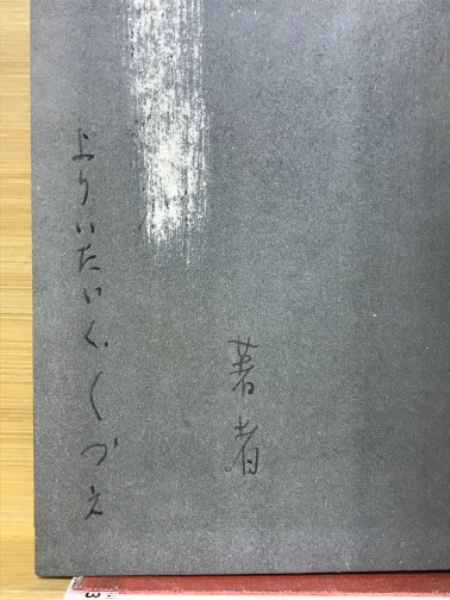 著者
よりいたいく、くづえ